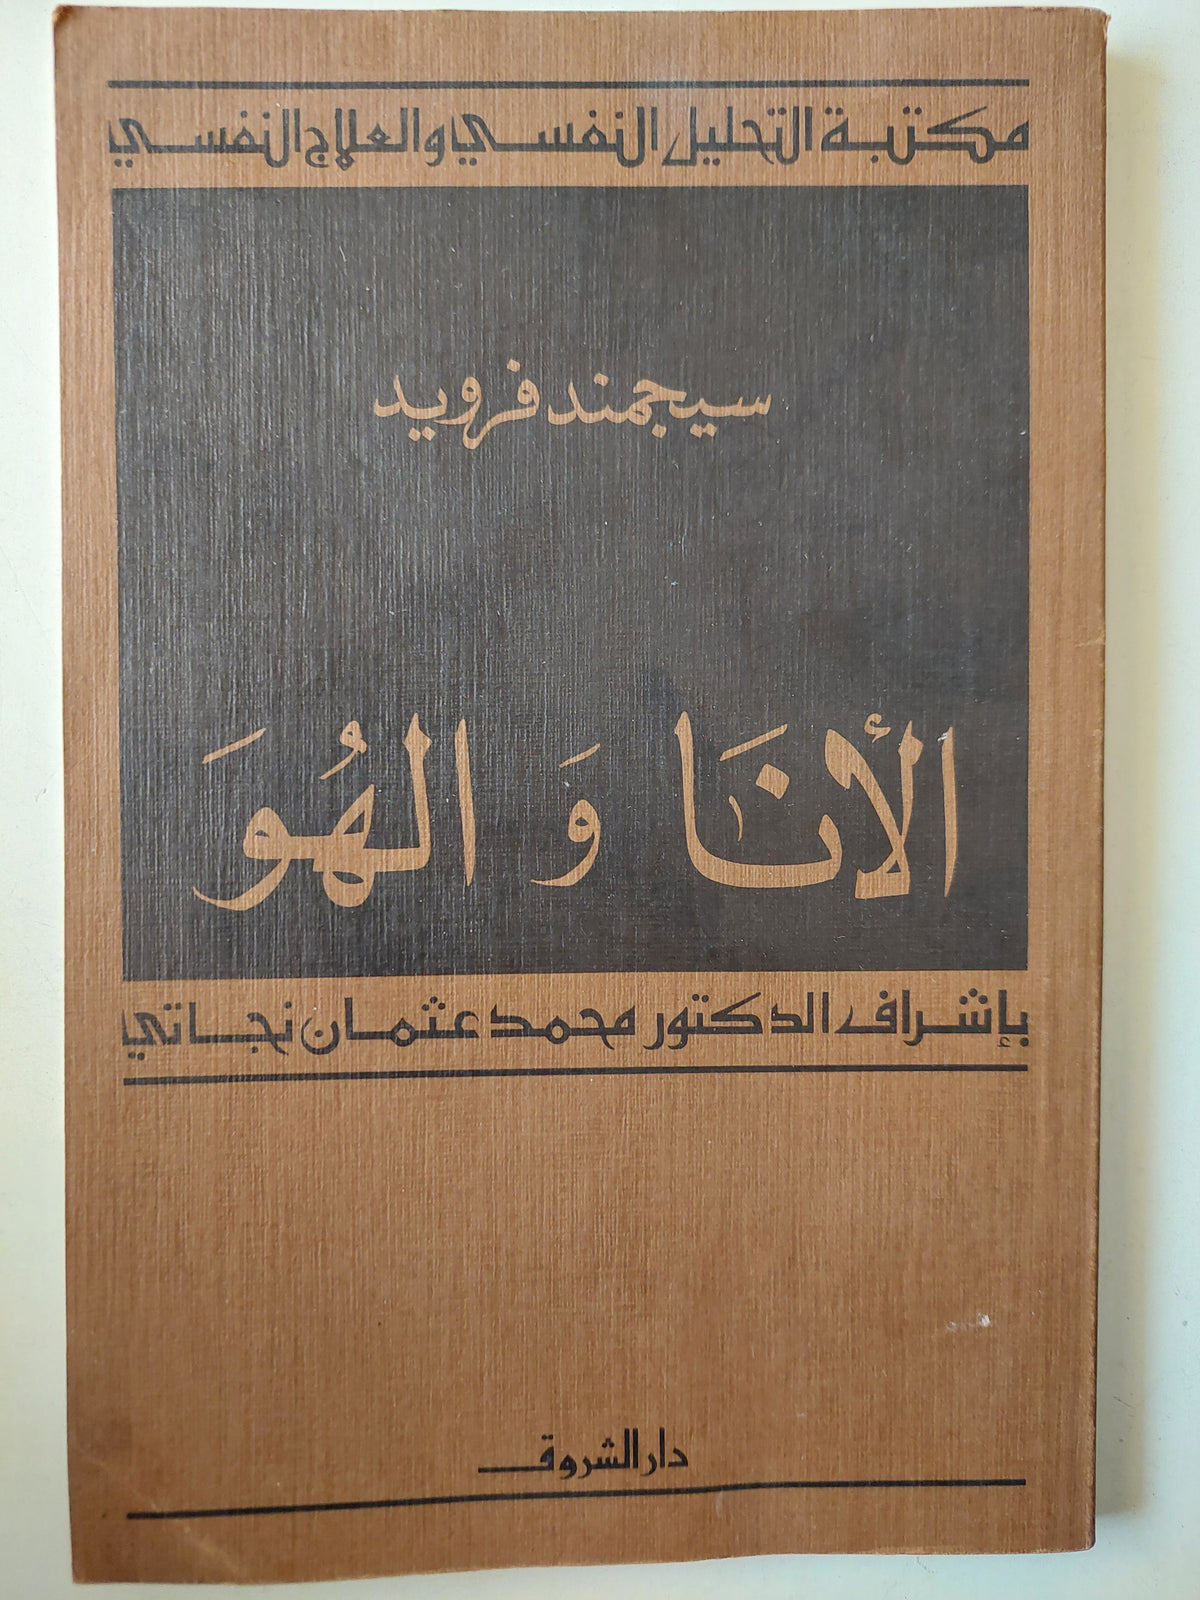 مكتبة التحليل النفسي والعلاج النفسي
سيجمند فرويد
الأنَا وَ الهُوَ
بإشراف الدكتور محمد عثمان نجاتي
دار الشروق